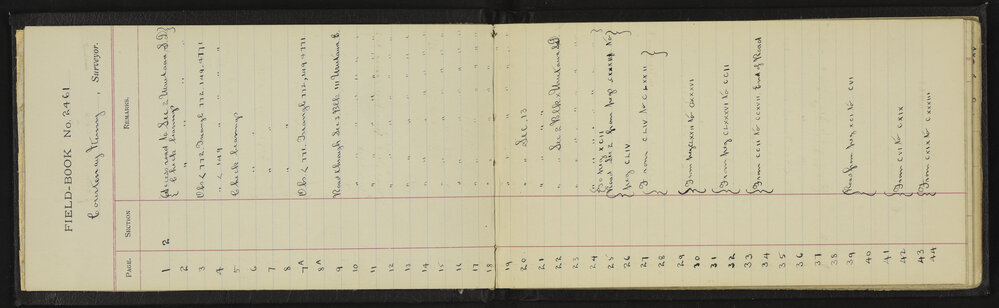 FIELD-BOOK No. 2461
Courtenay Kenny, Surveyor.
PAGE. SECTION REMARKS.
1 2 { Access road to Sec 2
{ Check bearings
2 " "
3 Obs < 772 Triangle 772, 149, 771
4 " < 149 " "
5 Check bearings
6 "
7 "
8 "
7A Obs < 771 Triangle 772, 149, 771
8A
9 Road through Sec 2 Blk III
10 " " " "
11 " " " "
12 " " " "
13 " " " "
14 " " " "
15 " " " "
16 " " " "
17 " " " "
18 " " " "
19 " " " "
20 " Sec. 13
21 " " "
22 " Sec 2 Blk
23 " " "
24 " " To peg XCII
25 Road Sec 2 from peg to
26 peg CLIV
27 } From CLIV to CLXXII
28
29 } From peg CLXXII to
30
31 } From peg CLXXXVI to CCII
32
33 } From CCII to CCXVII End of Road
34
35
36
37
38
39 } Road from peg XCI to CVI
40
41 } From CVI to CXIX
42
43 } From CXIX to CXXXIII
44